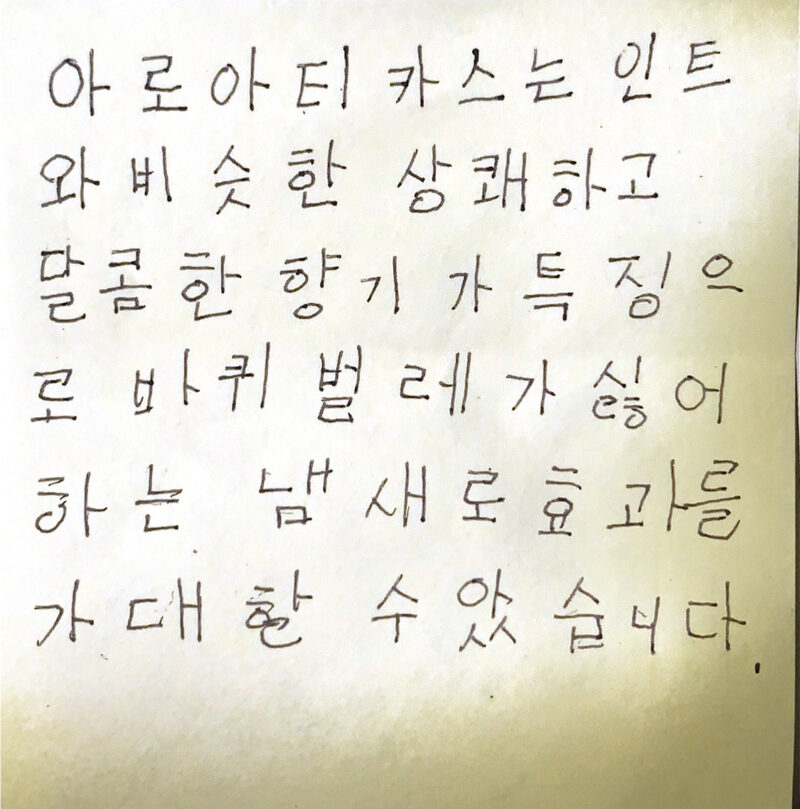 아로아티카스는 인트
와 비슷한 상쾌하고
달콤한 향기가 특징으
로 바퀴벌레가 싫어
하는 냄새로 효과를
가대할 수 았습니다.